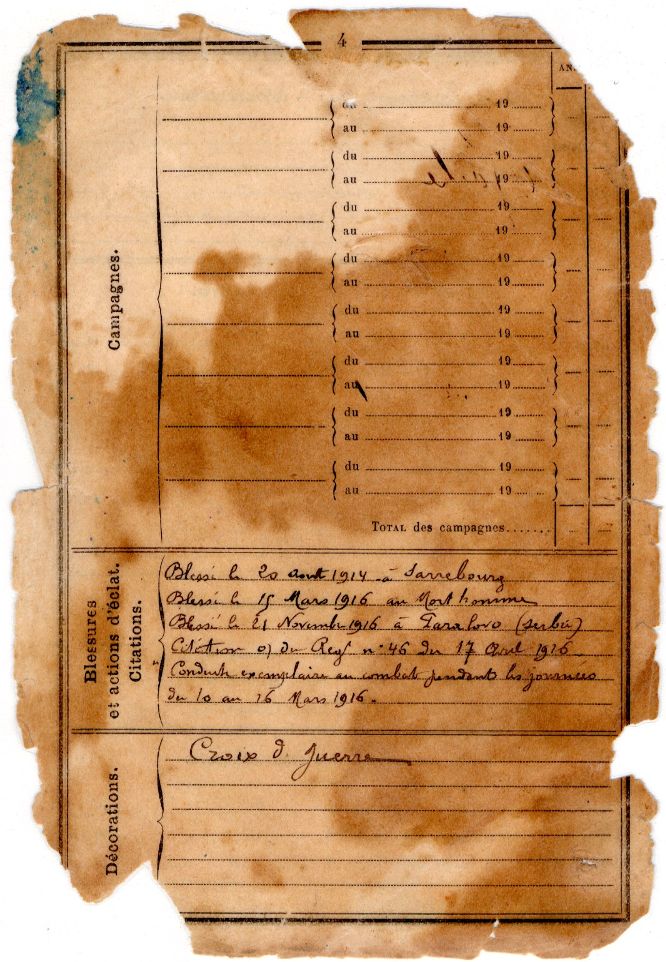 4
AN
Campagnes.
du 19
au 19
du 19
au 19
du 19
au 19
du 19
au 19
du 19
au 19
du 19
au 19
du 19
au 19
du 19
au 19
TOTAL des campagnes.......
Blessures
et actions d'éclat.
Citations.
Blessé le 20 août 1914 à Sarrebourg
Blessé le 15 Mars 1916 au Mort homme
Blessé le 21 Novembre 1916 à (Serbie)
Citation du Regt n° 46 du 17 Avril 1916
Conduite exemplaire au combat pendant les journées
du 10 au 16 Mars 1916.
Décorations.
Croix d. guerre